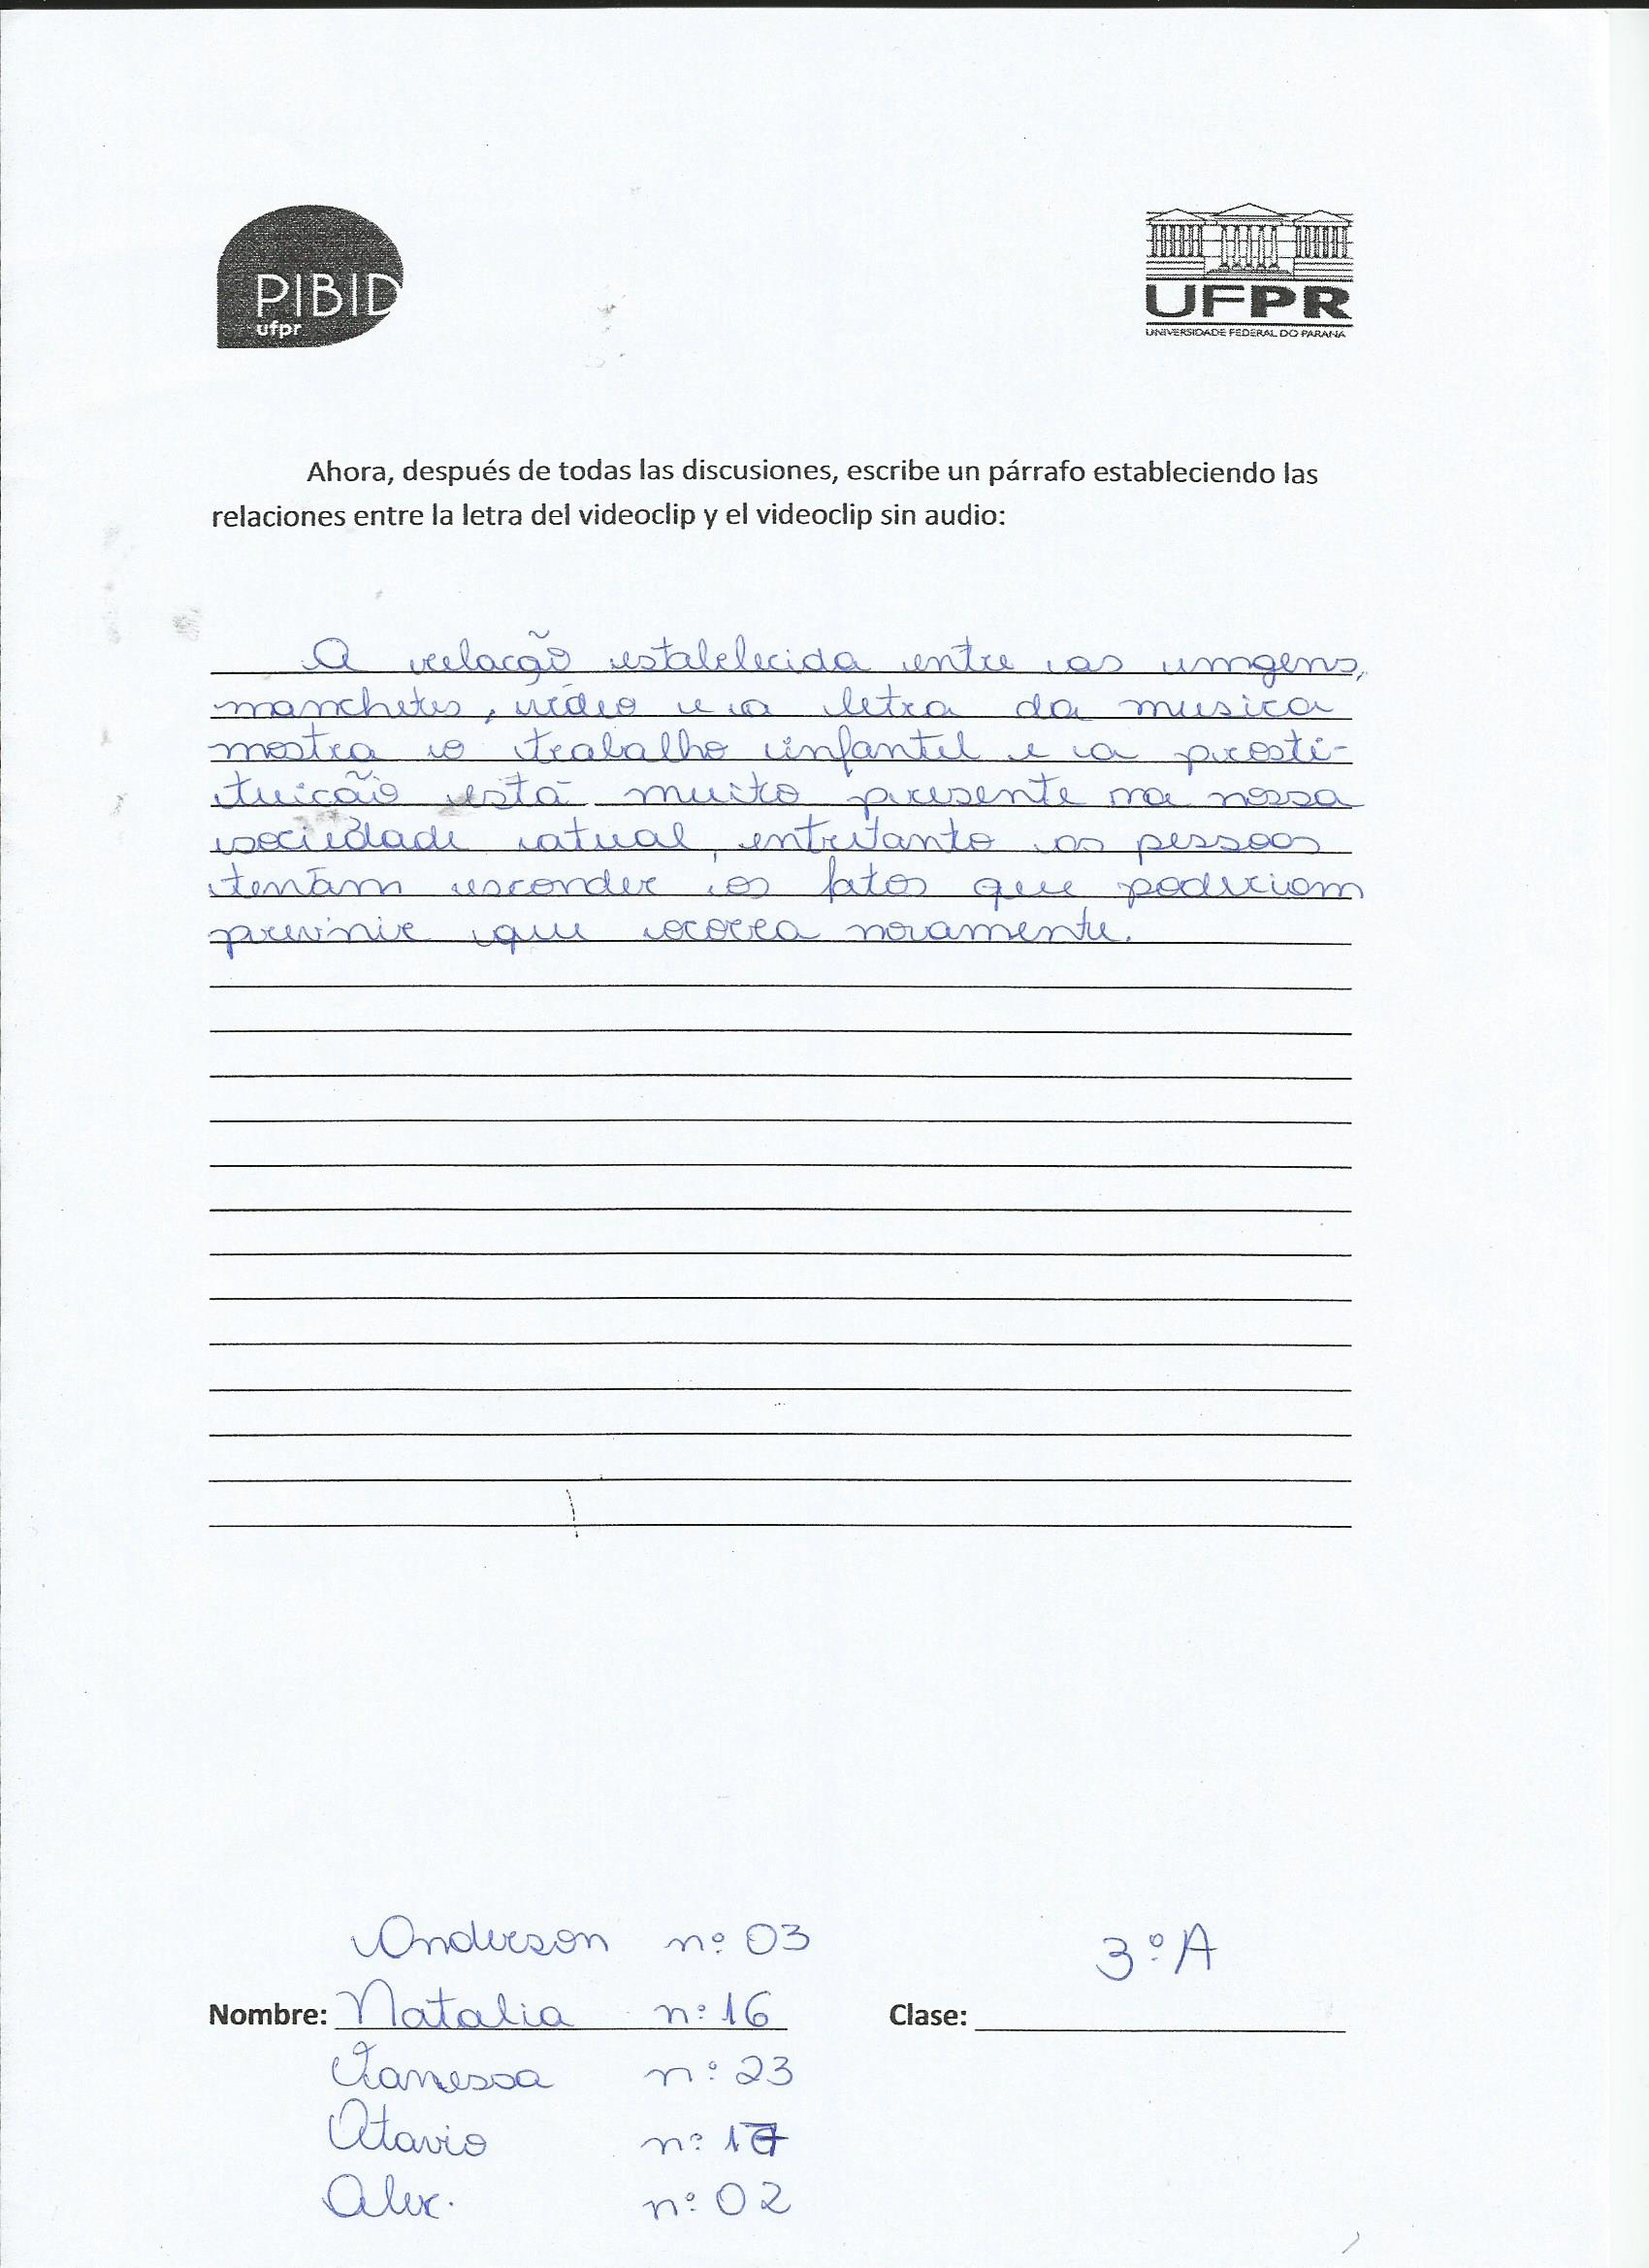 PIBID
ufpr
UFPR
UNIVERSIDADE FEDERAL DO PARANÁ
Ahora, después de todas las discusiones, escribe un párrafo estableciendo las
relaciones entre la letra del videoclip y el videoclip sin audio:
A relação estabelecida entre as imgens,
manchetes, vídeo e a letra da musica
mostra o trabalho infantil e a prosti-
tuição está muito presente na nossa
sociedade atual, entretanto as pessoas
tentam esconder os fatos que poderiam
previnir que ocorra novamente.
Anderson nº 03
3º A
Nombre: Natalia nº 16 Clase:
Vanessa nº 23
Otavio nº 17
Alex. nº 02